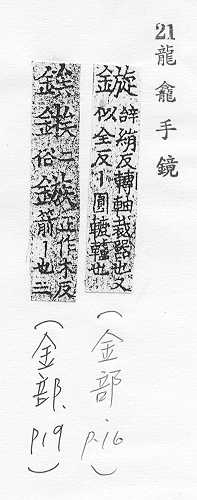 21 龍龕手鏡
鏇 辝絹反轉軸裁器也又
似全反丨圓轆轤也
(金部. p.16)
二俗 鏃 正作木反
箭丨也二
(金部. p19)